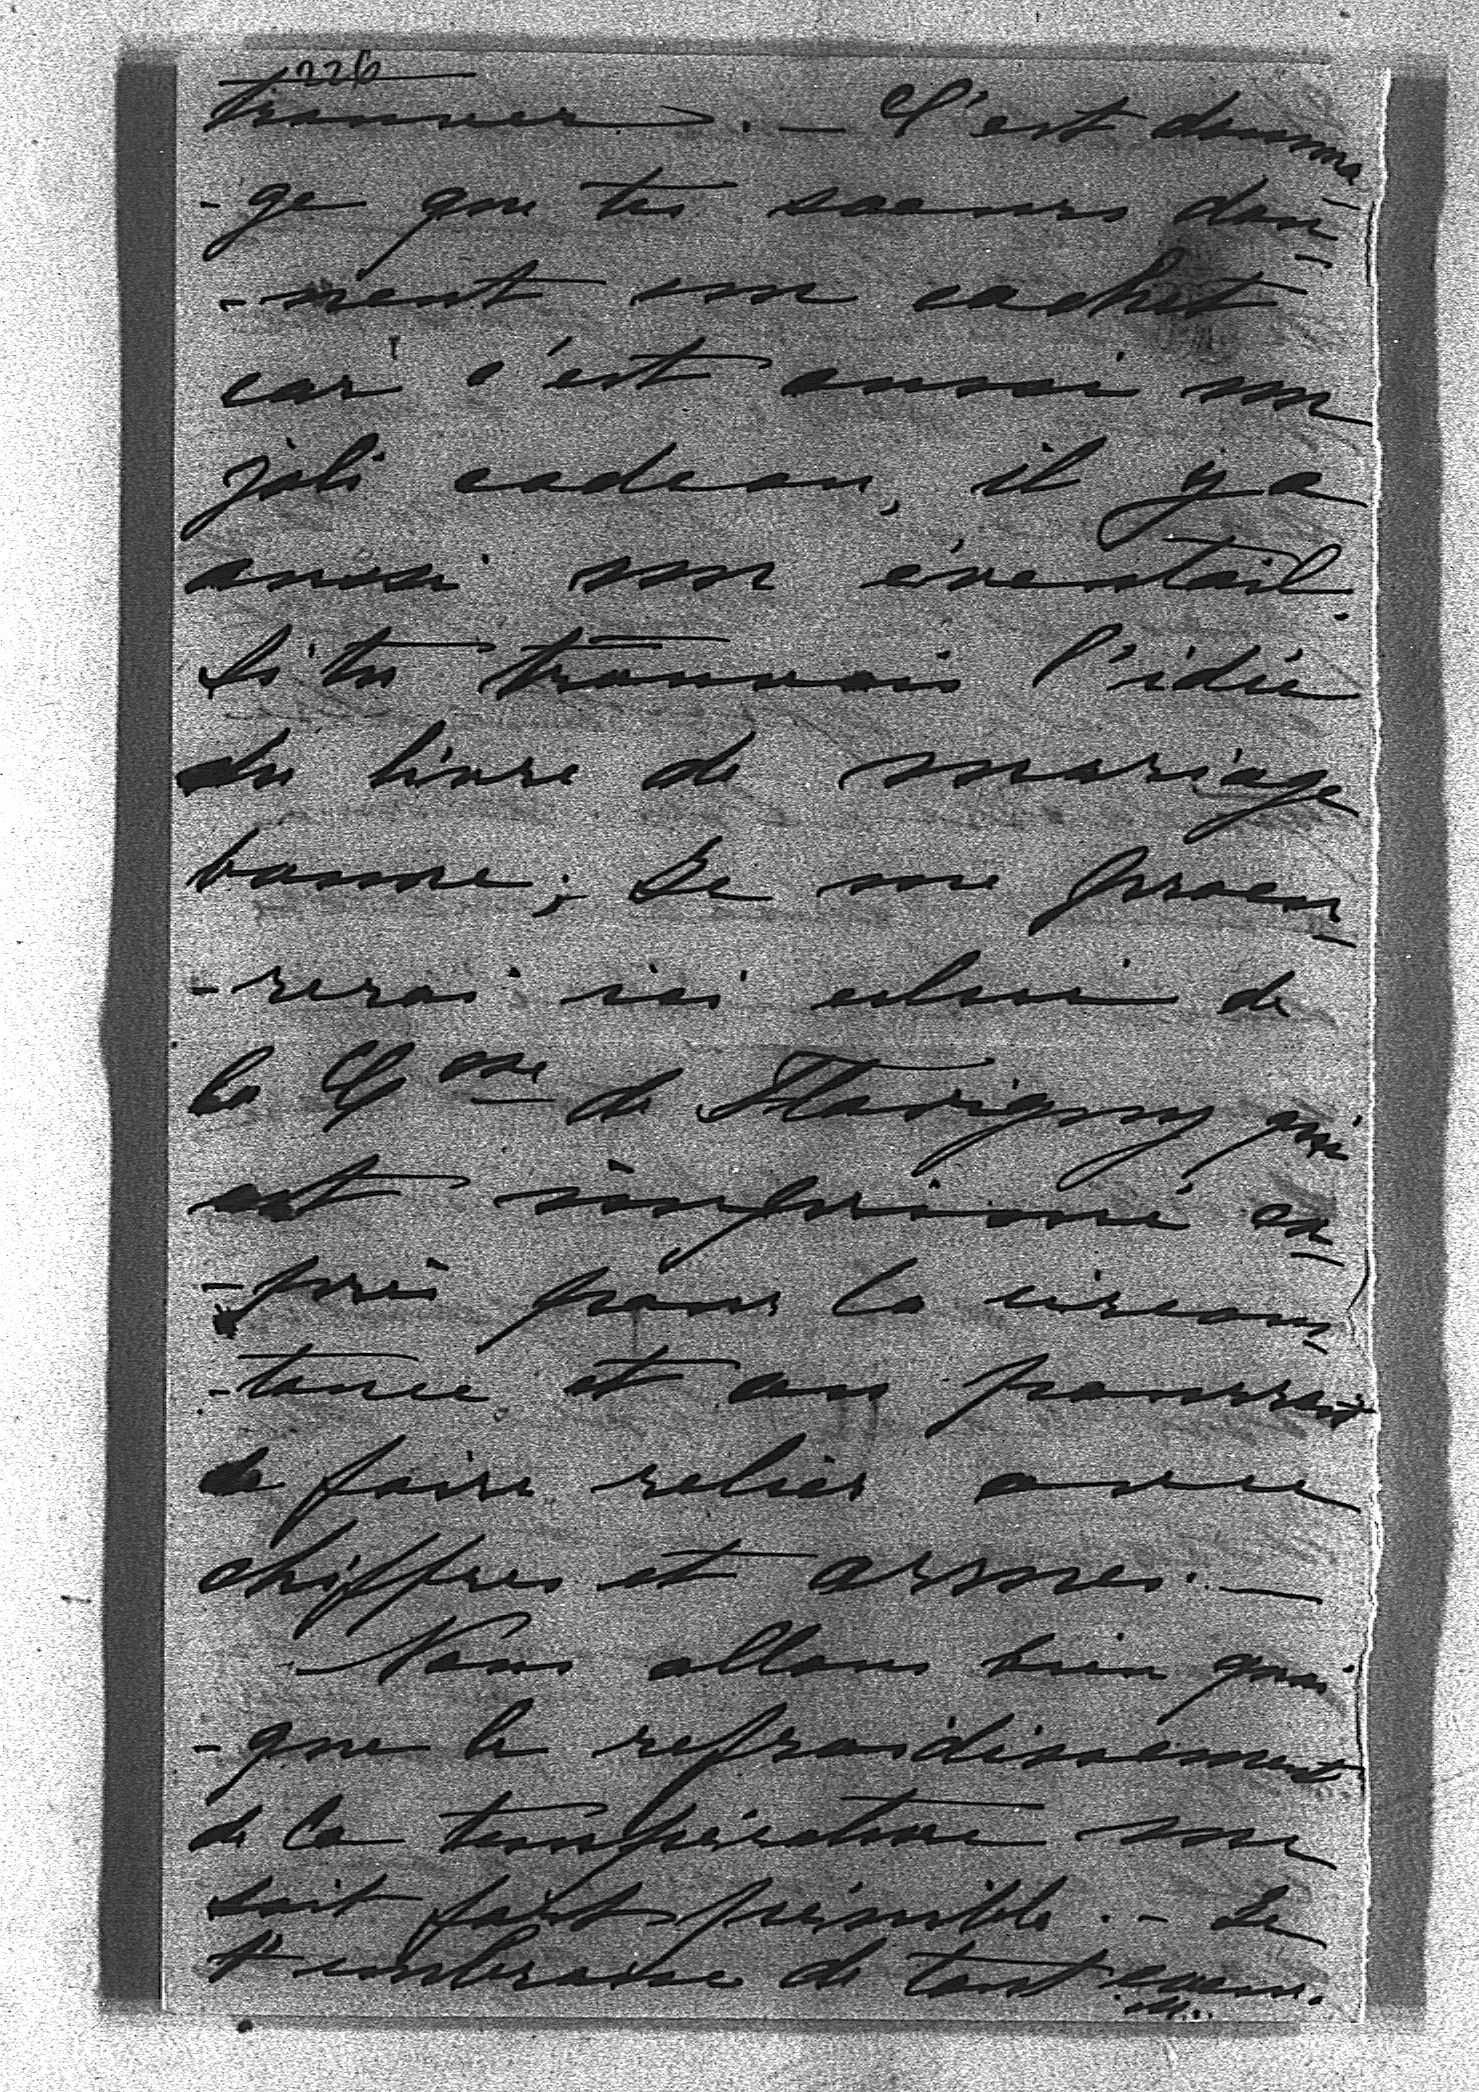 226
trouver. — C'est domma
-ge que tes soeurs don-
-nent un cachet
car c'est aussi un
joli cadeau, il y a
aussi un éventail.
Si tu trouvais l'idée
du livre de mariage
bonne, Je me procu-
-rerai ici celui de
la Ctesse de Flavigny qui
est imprimé ex-
-près pour la circons-
-tance et on pourrait
le faire relier avec
chiffres et armes. —
Nous allons bien quoi
-que le refroidissement
de la température me
soit fort pénible. — Je
t'embrasse de tout coeur.